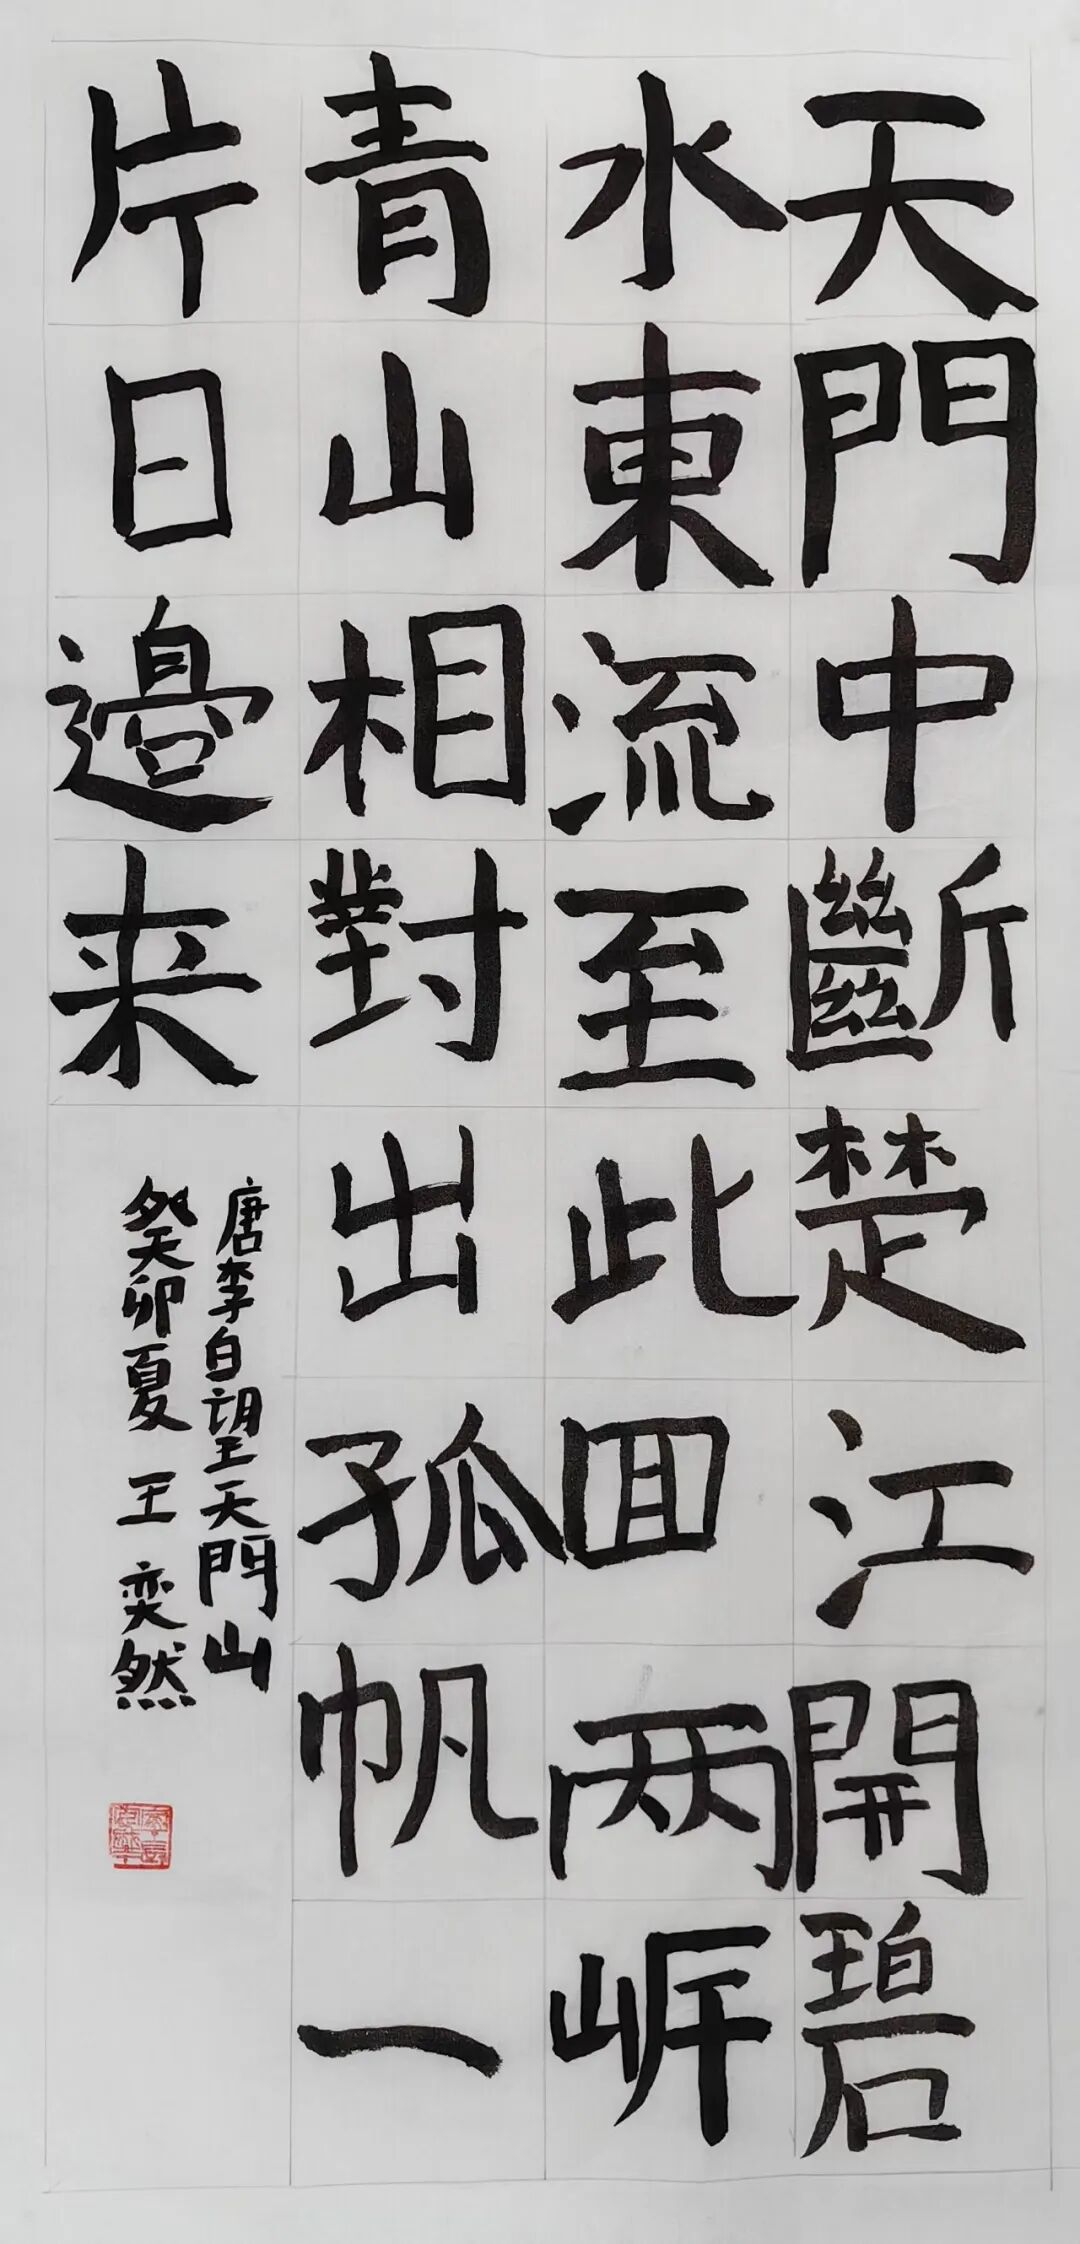 天門中斷楚江開碧
水東流至此回兩岸
青山相對出孤帆一
片日邉来
唐李白望天門山
癸卯夏 王奕然